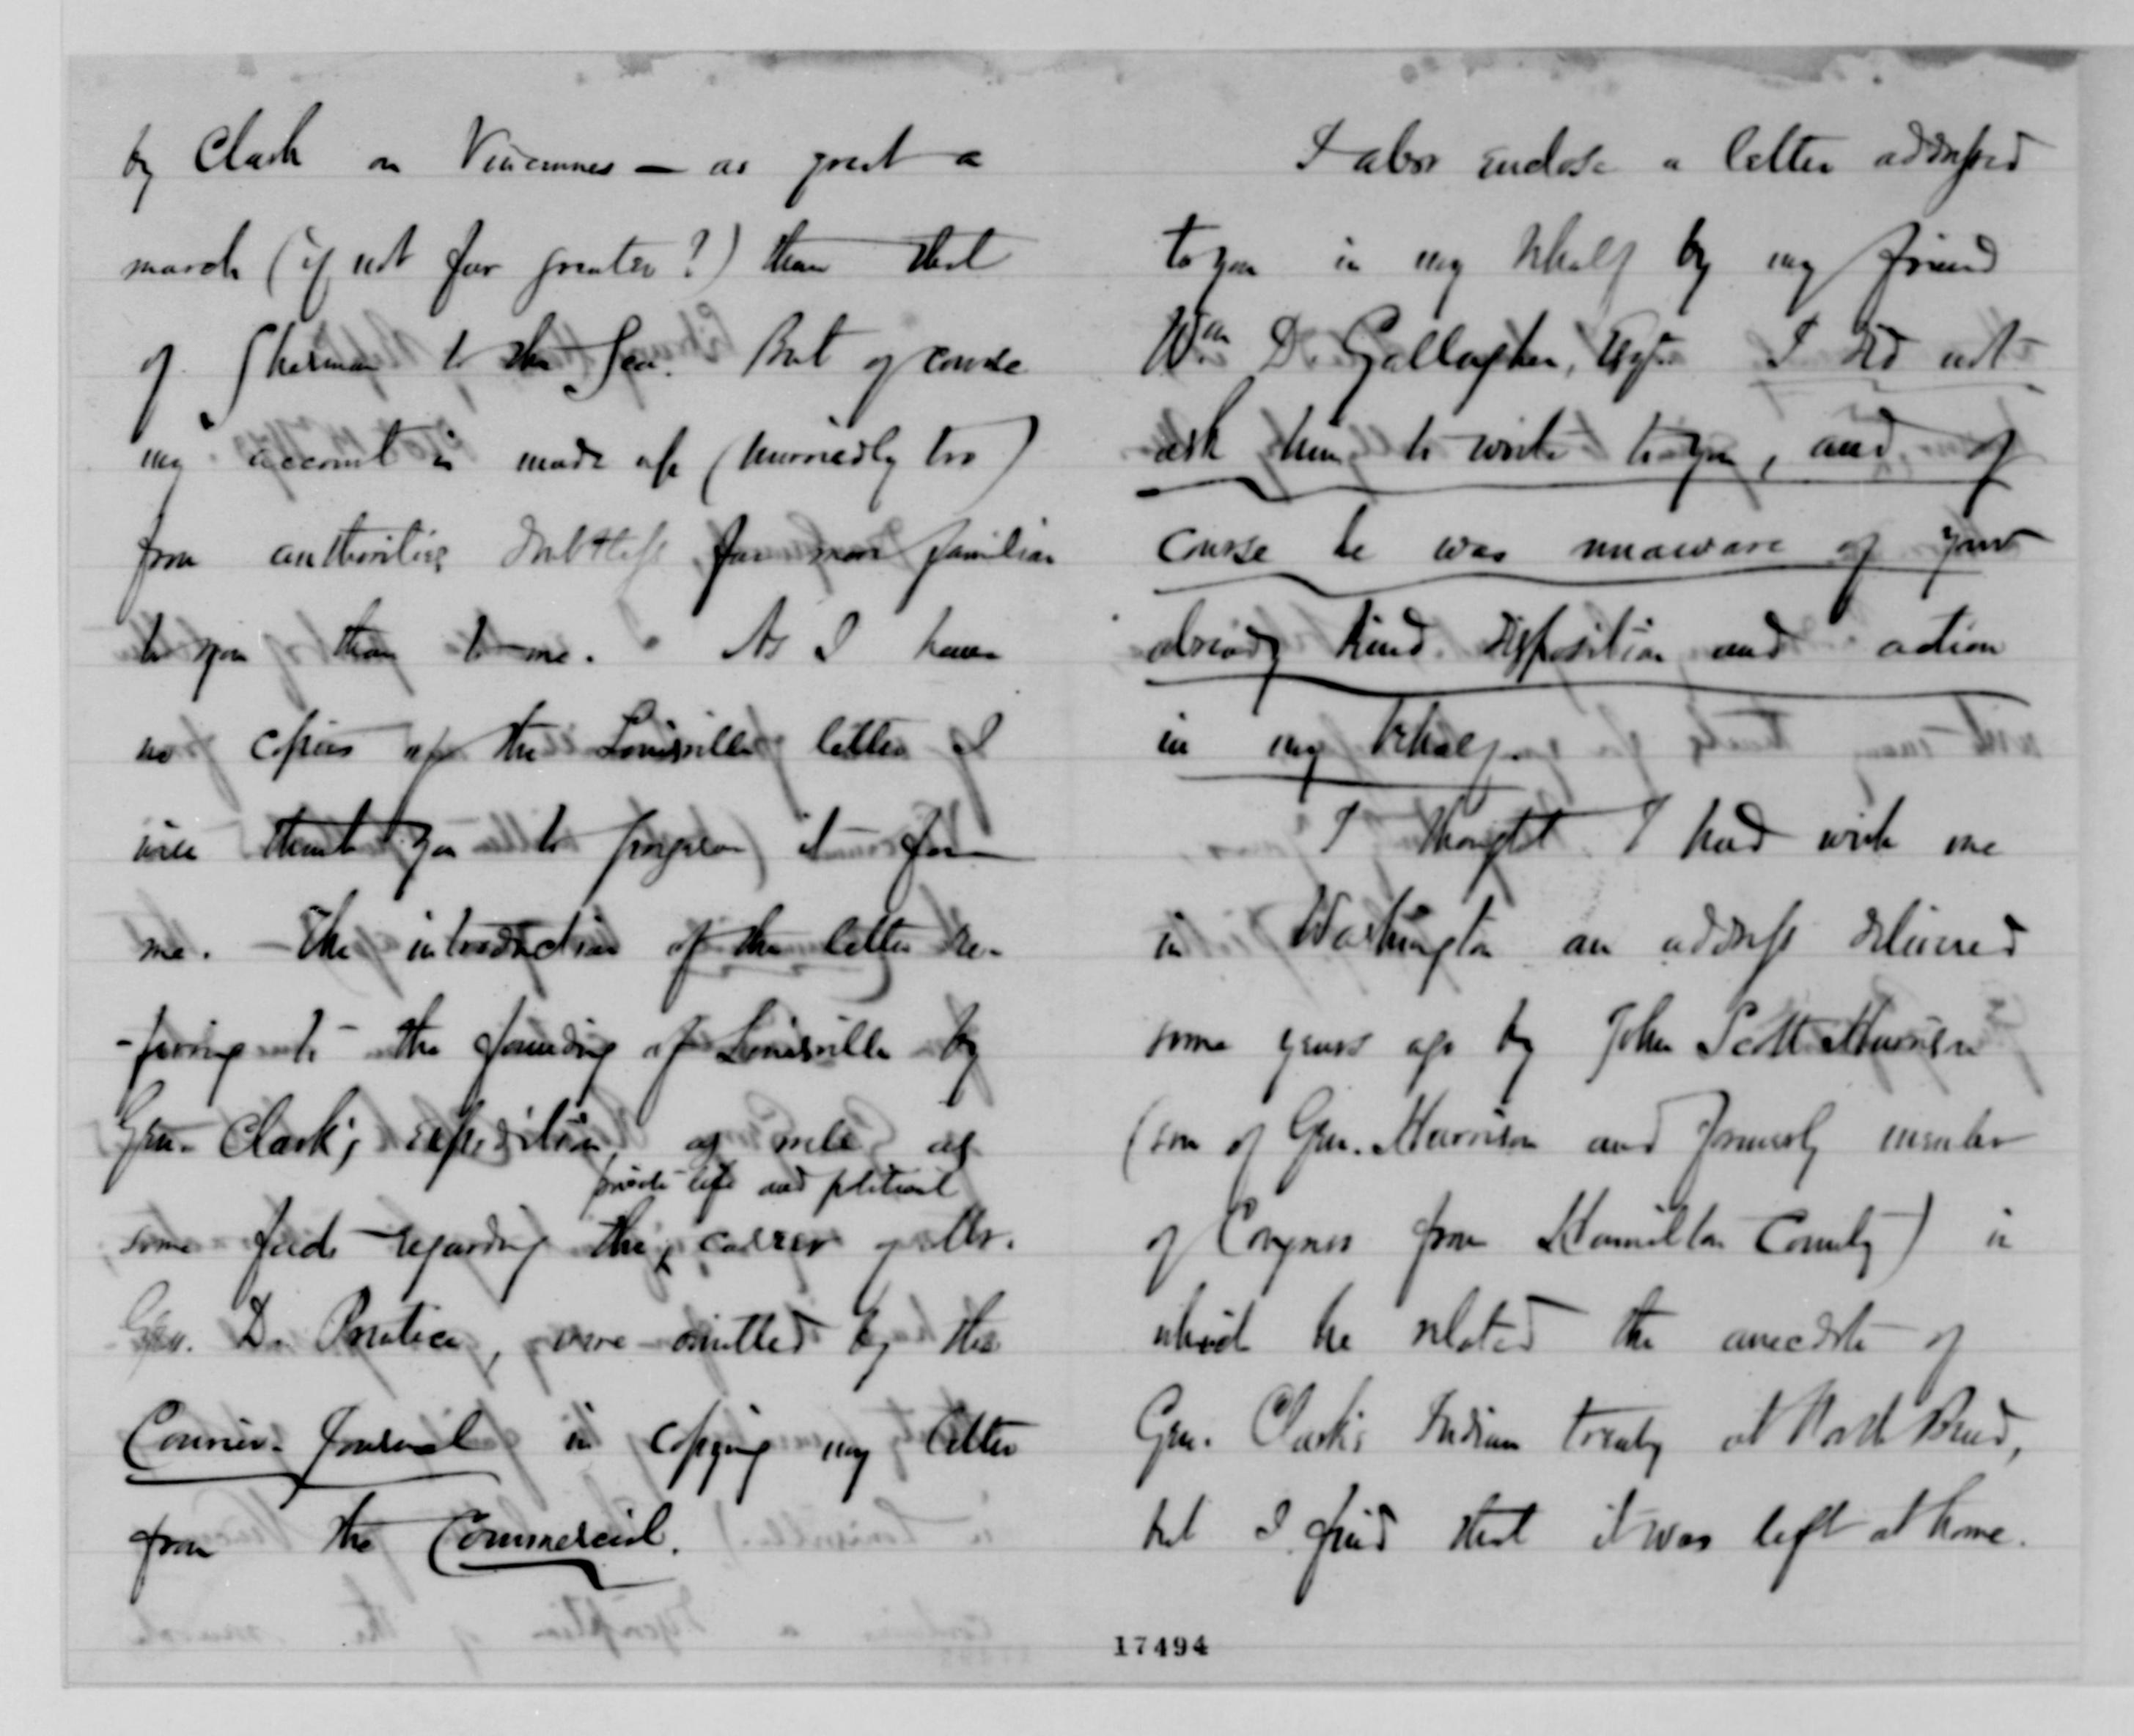 by Clark on Vincennes — as great a
march (if not far greater?) than that
of Sherman to the Sea. But of course
my account is made up (hurriedly too)
from authorities doubtless far more familiar
to you than to me. As I have
no copies of the Louisville letter I
will thank you to preserve it for
me. — The introduction of the letter re-
-ferring to the founding of Louisville by
Gen. Clark's expedition, as well as
private life and political
some facts regarding the career of Mr.
Geo. D. Prentice, were omitted by the
Courier-Journal in copying my letter
from the Commercial.
I also enclose a letter addressed
to you in my behalf by my friend
Wm D. Gallagher, Esqr. I did not
ask him to write to you, and of
course he was unaware of your
already kind disposition and action
in my behalf.
I thought I had with me
in Washington an address delivered
some years ago by John Scott Harrison
(son of Gen. Harrison and formerly member
of Congress from Hamilton County) in
which he related the anecdote of
Gen. Clark's Indian treaty at North Bend,
but I find that it was left at home.
17494